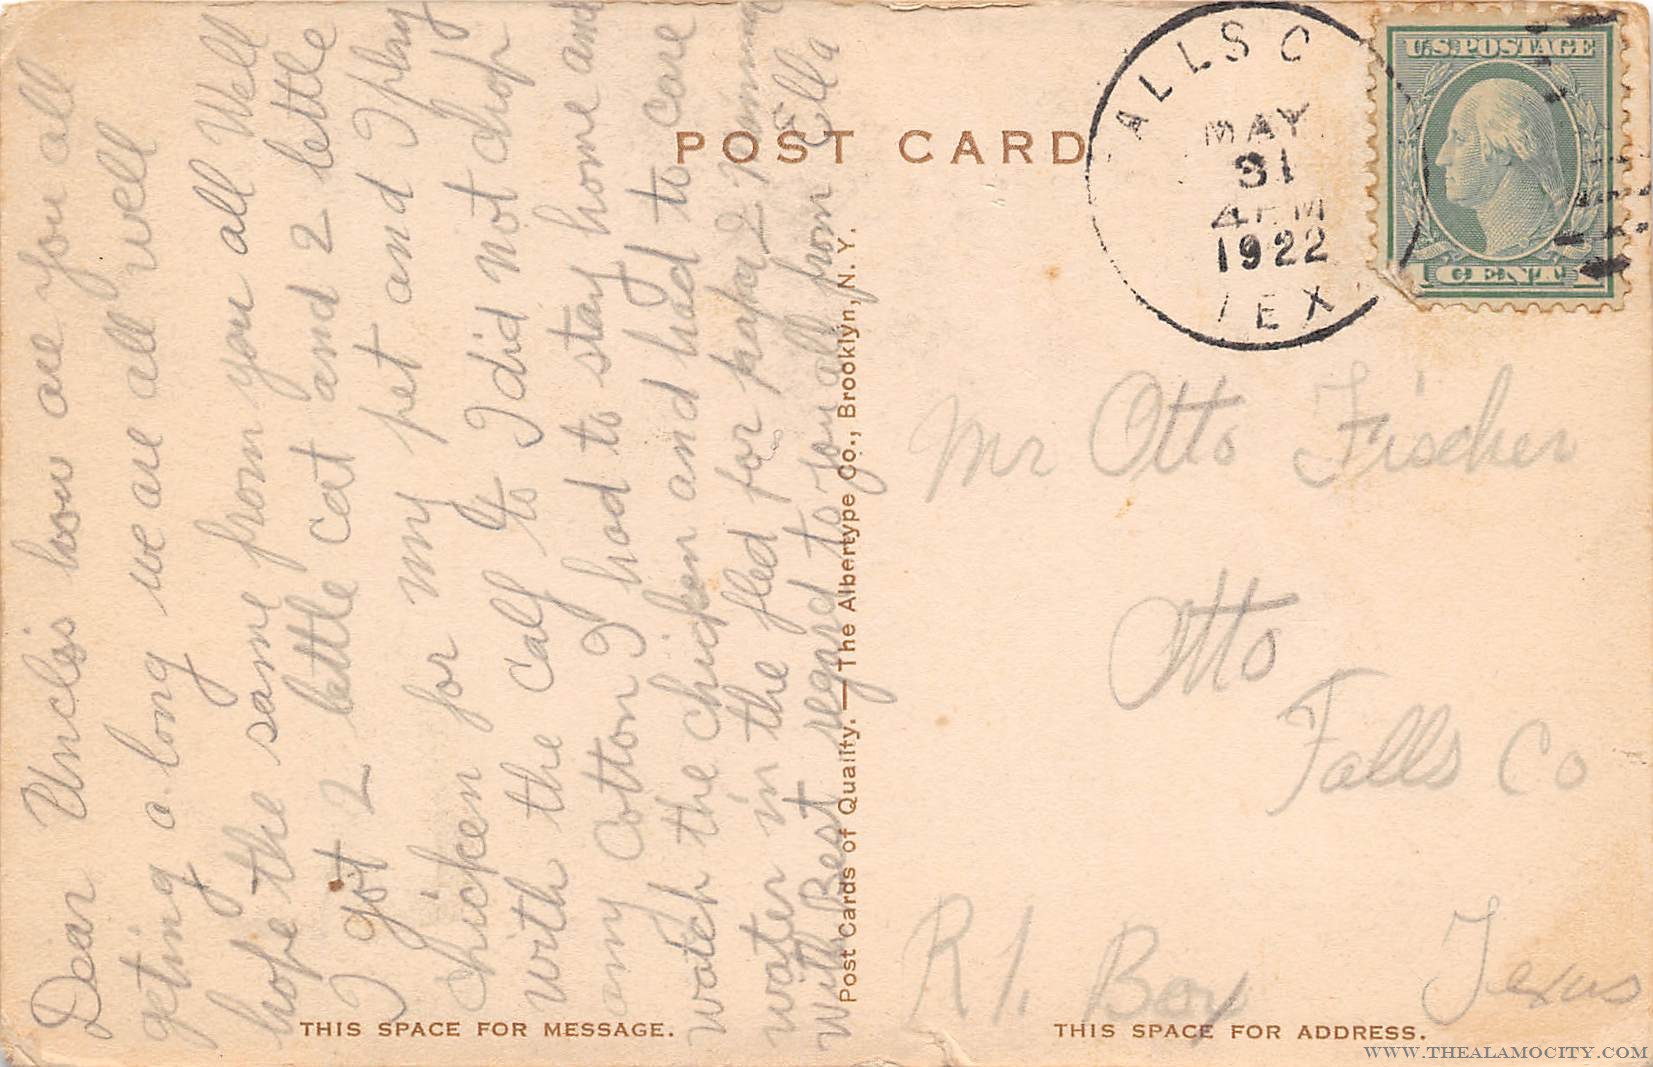 Dear Uncles how are you all
geting a long we are all well
hope the same from you all Well
I got 2 little cat and 2 little
chicken for my pet and I play
with the calf to I did not chop
any cotton I had to stay home and
watch the chicken and had to care
water in the fled for papa 2 Minning
With Best regard to you all from Ella
POST CARD
Post Cards of Quality.—The Albertype Co., Brooklyn, N. Y.
THIS SPACE FOR MESSAGE.
ALLS C
MAY
31
4 PM
1922
TEX.
U.S. POSTAGE
1 CENT 1
Mr Otto Fischer
Otto
Falls Co
R1. Box Texas
THIS SPACE FOR ADDRESS.
WWW.THEALAMOCITY.COM